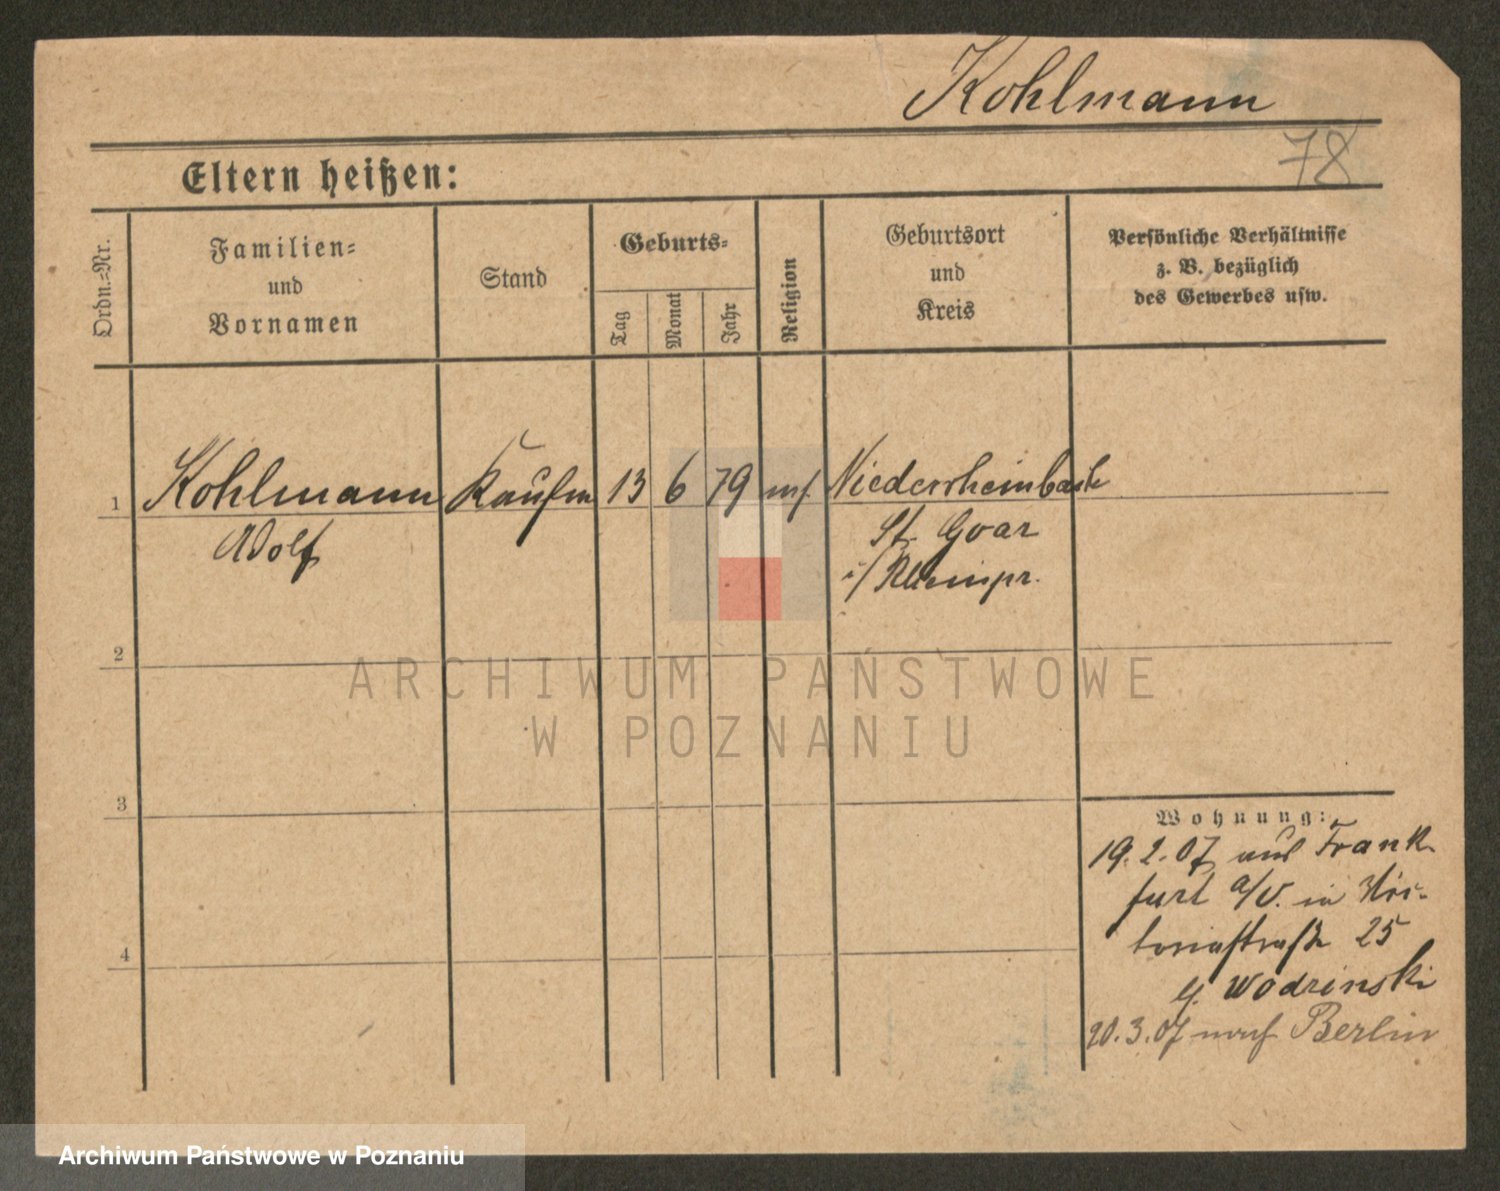 Kohlmann
78
Eltern heißen:
Ordn.-Nr.
Familien-
und
Vornamen
Stand
Geburts-
Tag
Monat
Jahr
Religion
Geburtsort
und
Kreis
Persönliche Verhältnisse
z. B. bezüglich
des Gewerbes usw.
1 Kohlmann Kaufm 13 6 79 Niederrheinbach
Adolf
St. Goar
i/Rheinpr.
2
3
4
Wohnung:
19.2.07 aus Frank
furt a/O. in Vik-
toriastraße 25
Wodzinski
20.3.07 nach Berlin
ARCHIWUM PAŃSTWOWE
W POZNANIU
Archiwum Państwowe w Poznaniu